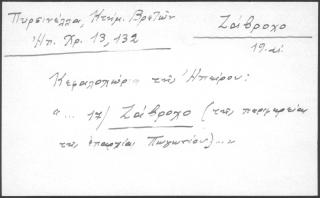 Πυρσινέλλα, Κτημ. Βρεττῶν
Ἠπ. Χρ. 13, 132
Ζάβροχο
19. αἰ.
Κεφαλοχώρια τῆς Ἠπείρου:
"... 17/ Ζάβροχο (τῆς περιφερείας
τῆς ἐπαρχίας Πωγωνίου)..."